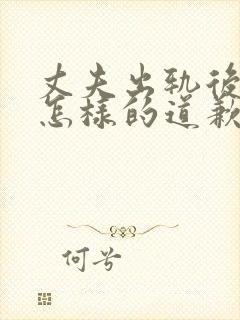 丈夫出轨後
怎樣的道歉
何兮